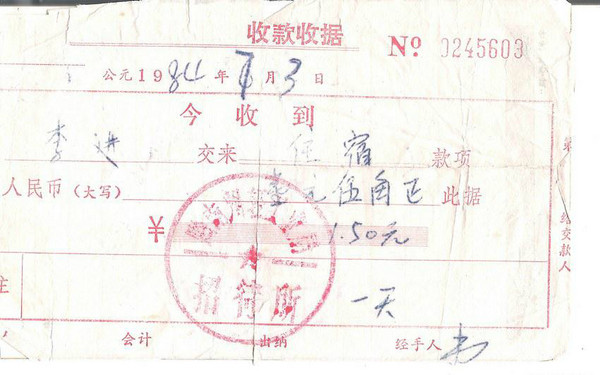 收款收据 № 0245603
公元1984年 月3日
今收到
李进 交来 住宿 款项
人民币(大写) 壹元伍角正 此据
¥ 1.50元
招待所
一天
会计 出纳 经手人
交款人